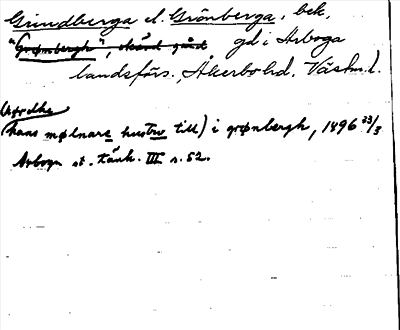 Grindberga el. Grönberga, bek.
"Grønbergh", okänd gård, gd i Arboga
landsförs., Åkerbo hd, Västm. l.
(hans mølnare hustrv till) i grønbergh, 1496 23/3
Arboga st. tänk. III s. 52.